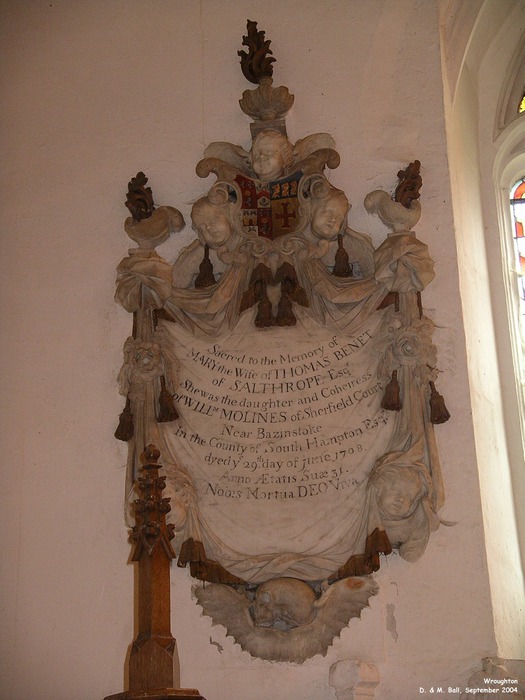 Sacred to the Memory of
MARY the Wife of THOMAS BENET
of SALTHROPE Esqr
She was the daughter and Coheiress
of WILLm MOLINES of Sherfield Court
Near Bazinstoke
in the County of South Hampton Esqr
dyed ye 29th day of june 1708
Anno Ætatis Suæ 31.
Nobis Mortua DEO Viva
Wroughton
D. & M. Ball, September 2004